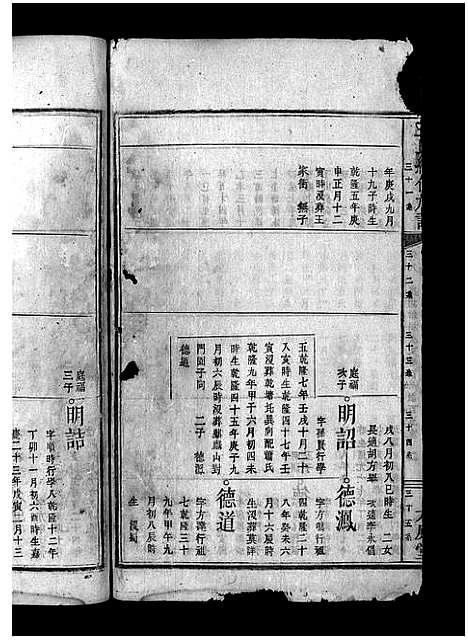 三十一卷
三十二卷
三十三卷
三十四卷
三十五卷
年庚戌九月
十九子時生
乾隆五年庚
申正月十二
寅時沒葬王
家衝 無子
戊八月初八巳時生 二女
長適胡方舉 次適李永儒
庭福
次子
明詔
德溉
字 賢行學
五乾隆七年壬戌十月二十
八亥時生乾隆四十七年壬
寅沒葬乾塘坨異列配蕭氏
乾隆九年甲子六月初四未
時生乾隆四十五年庚子九
月初六辰時沒葬 山對
門園子內 二子 德溉
德道
字方 行祖
四乾隆二十
八年癸未六
月十六辰時
生沒葬莫詳
德道
字方 行祖
七乾隆三十
九年甲午九
月初八辰時
生 沒
庭福
三子
明詰
字 行學八乾隆十二年
丁卯十一月初六酉時生嘉
慶二十三年戊寅二月十三